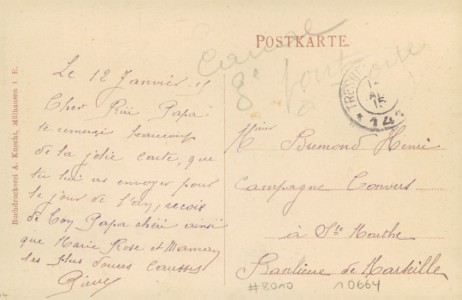 POSTKARTE
Buchdruckerei A. Knecht, Mülhausen i. E.
Le 12 Janvier 15
Cher Riri Papa
te remercie beaucoup
de la jolie carte, que
tu lui as envoyer pour
le jour de l'an, recois
de ton Papa chéri ainsi
que Marie Rose et Maman
les plus douces caresses
Pierre
TRESOR
15
* 142
Henri
Campagne Convers
à Ste Marthe
Banlieue de Marseille
#8010
10664